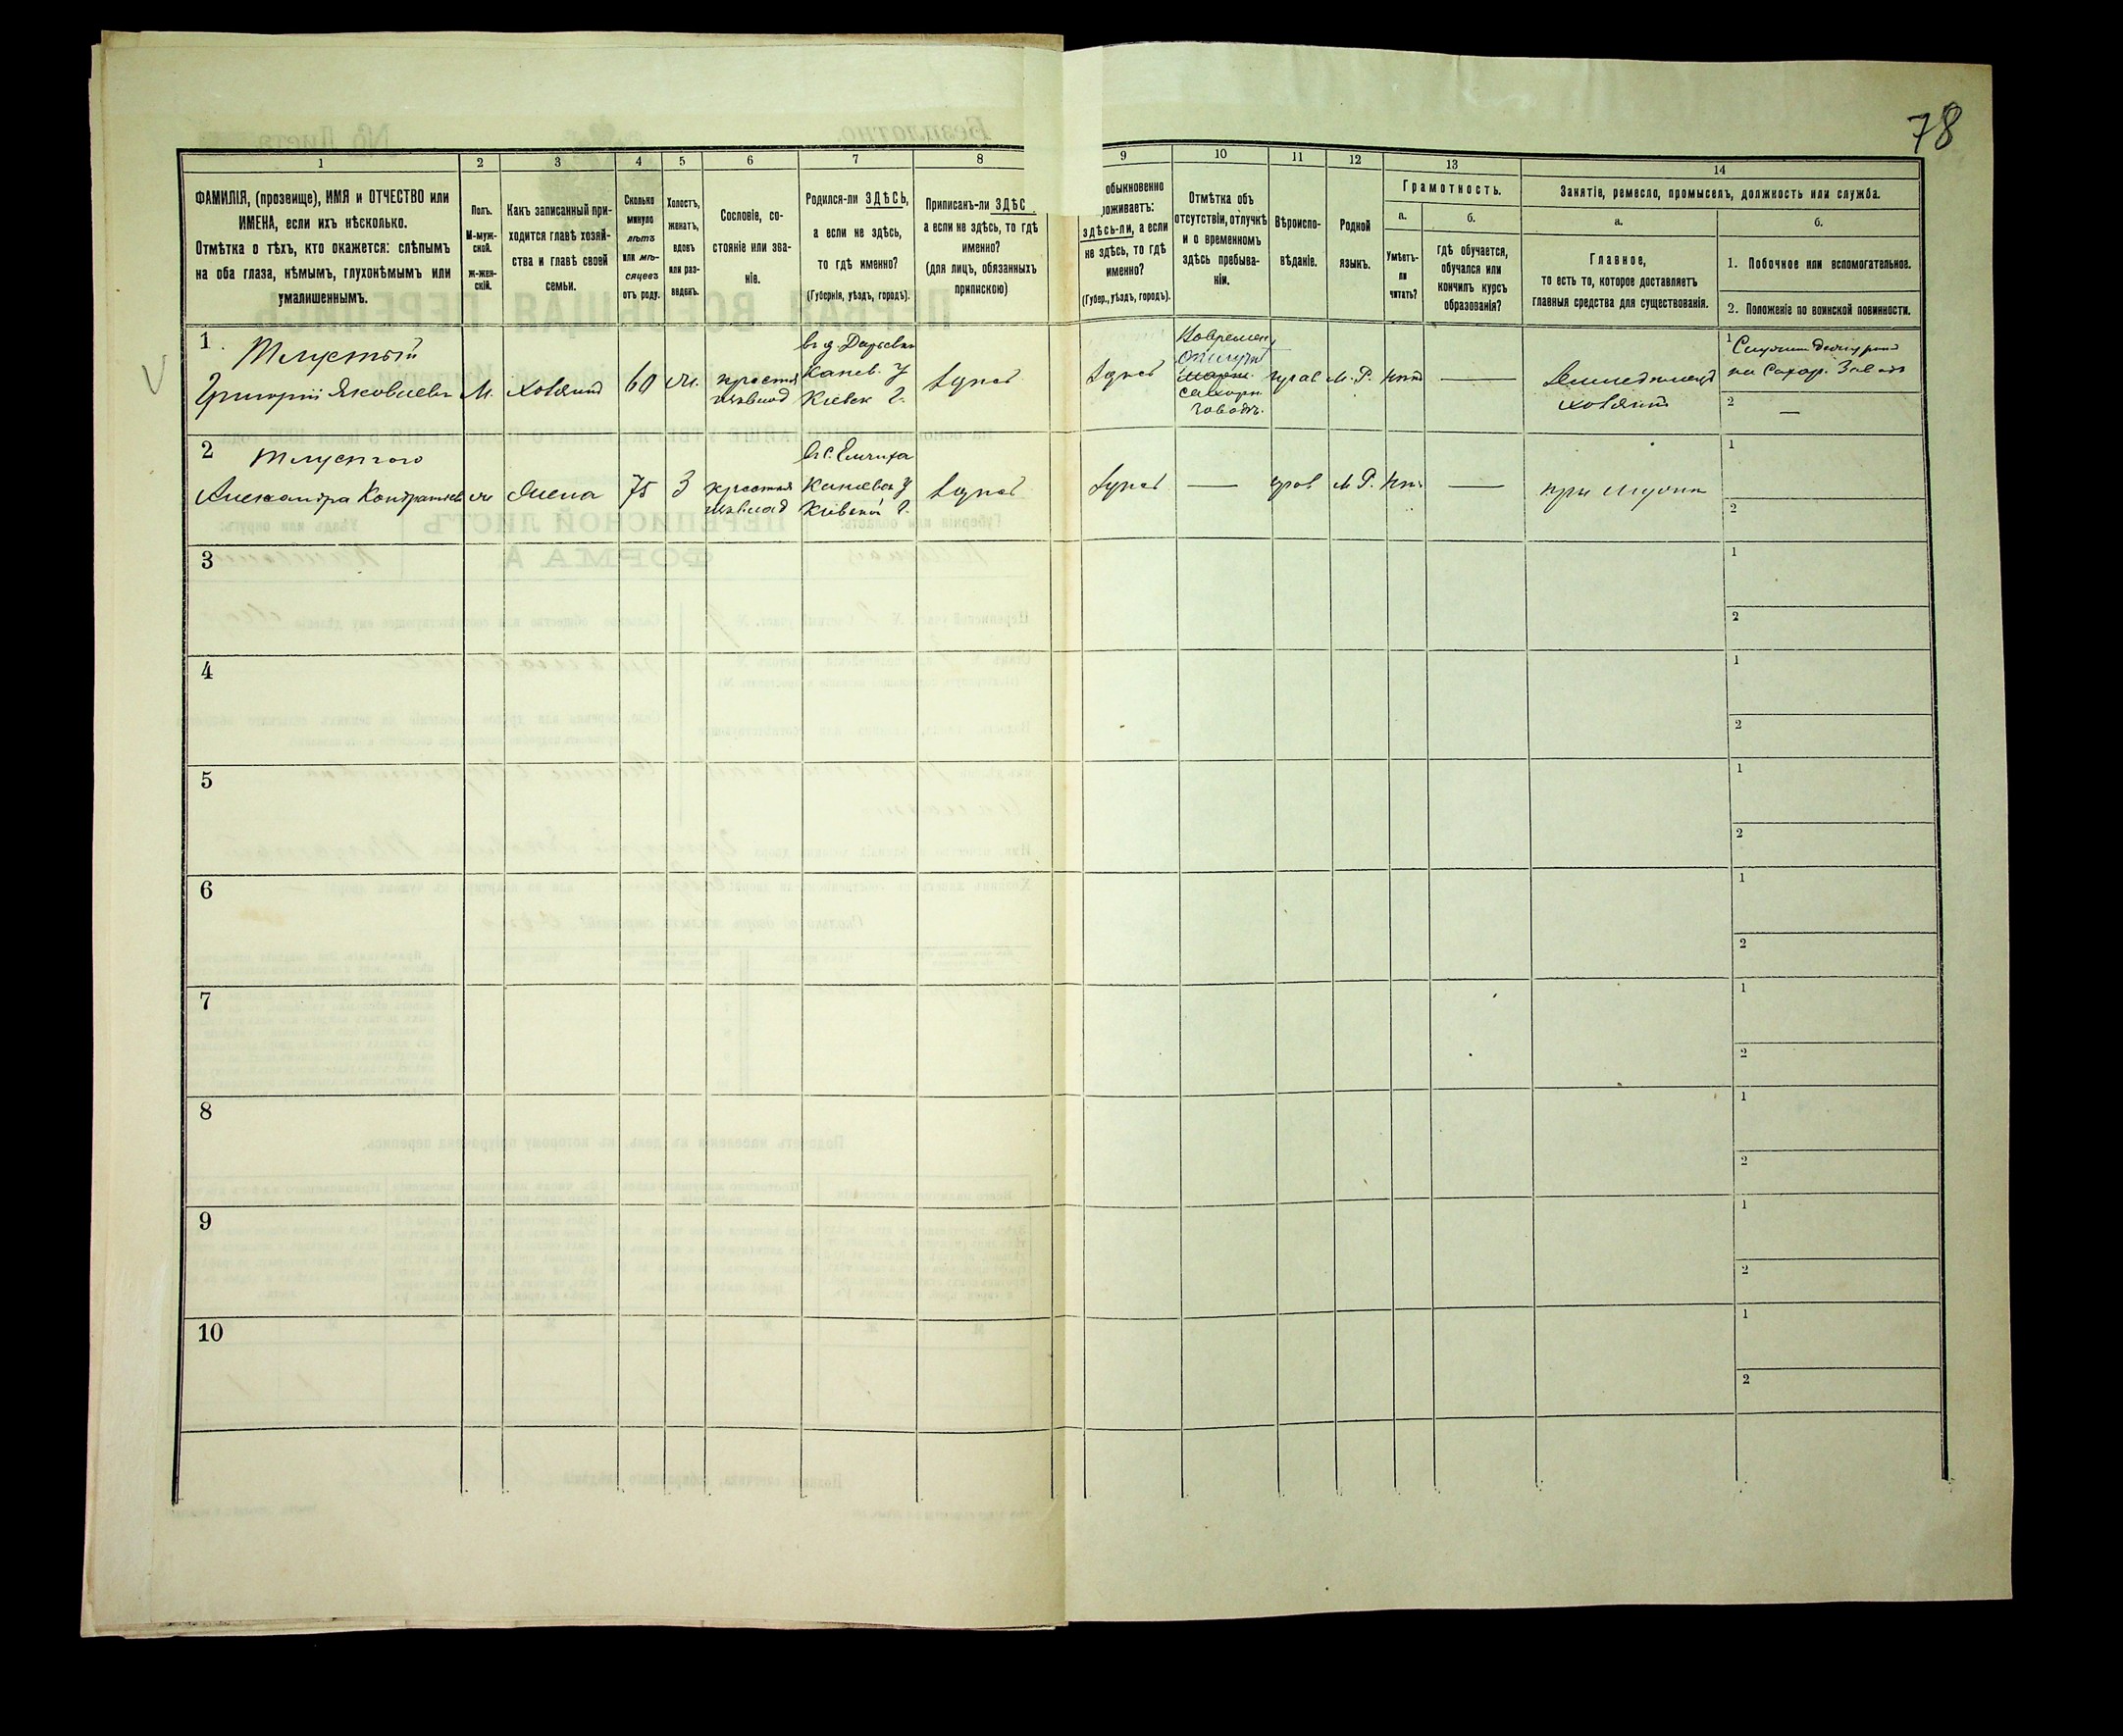 78
1
2
3
4
5
6
7
8
9
10
11
12
13
14
ФАМИЛІЯ, (прозвище), ИМЯ и ОТЧЕСТВО или
ИМЕНА, если ихъ нѣсколько.
Отмѣтка о тѣхъ, кто окажется: слѣпымъ
на оба глаза, нѣмымъ, глухонѣмымъ или
умалишеннымъ.
Полъ.
М-муж-
ской.
ж-жен-
скій.
Какъ записанный при-
ходится главѣ хозяй-
ства и главѣ своей
семьи.
Сколько
минуло
лѣтъ
или мѣ-
сяцевъ
отъ роду.
Холостъ,
женатъ,
вдовъ
или раз-
веденъ.
Сословіе, со-
стояніе или зва-
ніе.
Родился-ли ЗДѢСЬ,
а если не здѣсь,
то гдѣ именно?
(Губернія, уѣздъ, городъ).
Приписанъ-ли ЗДѢС
а если не здѣсь, то гдѣ
именно?
(для лицъ, обязанныхъ
припискою)
обыкновенно
роживаетъ:
здѣсь-ли, а если
не здѣсь, то гдѣ
именно?
(Губер., уѣздъ, городъ).
Отмѣтка объ
отсутствіи, отлучкѣ
и о временномъ
здѣсь пребыва-
ніи.
Вѣроиспо-
вѣданіе.
Родной
языкъ.
Грамотность.
а.
Умѣетъ-
ли
читать?
б.
гдѣ обучается,
обучался или
кончилъ курсъ
образованія?
Занятіе, ремесло, промыселъ, должность или служба.
а.
Главное,
то есть то, которое доставляетъ
главныя средства для существованія.
б.
1. Побочное или вспомогательное.
2. Положеніе по воинской повинности.
1
Тлустый
Григорій Яковлевъ
М.
хозяинъ
60
ж.
крестян
изъ влад
въ д.
Канев. у
Кіевск г.
здѣсь
здѣсь
сахарн.
заводъ.
прав
М. Р.
нѣтъ
—
Земледѣлецъ
хозяинъ
1
на Сахар. Завод
2 —
2
Тлустого
Александра Кондратьев
ж
жена
75
3
крестян
изъ влад
въ с.
Каневск у
Кіевской г.
здѣсь
здѣсь
—
прав
М Р.
нѣт
—
при мужѣ
1
2
3
1
2
4
1
2
5
1
2
6
1
2
7
1
2
8
1
2
9
1
2
10
1
2